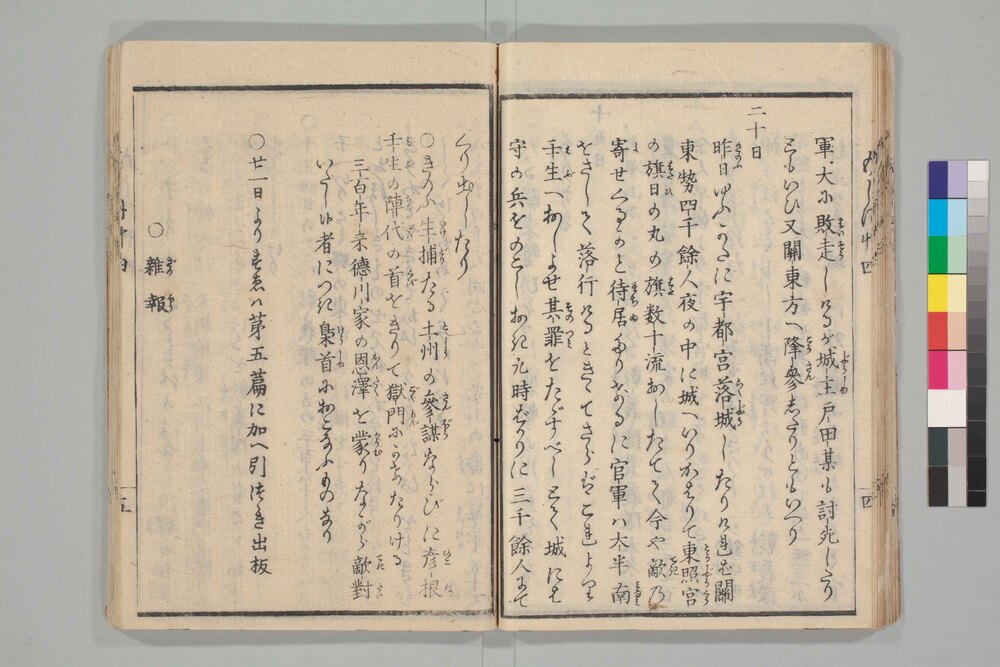 軍大に敗走しけるが城主戸田某も討死したり
ともいひ又關東方へ降參したりともいへり
二十日
昨日ゆふかたに宇都宮落城したりければ關
東勢四千餘人夜の中に城へいりかはりて東照宮
の旗日の丸の旗数十流おしたてゝ今や敵の
寄せくるかと待居たりおなるに官軍ハ大半南
をさして落行けるときゝてさらばこれより
壬生へおしよせ其罪をたゞすべしとて城にも
守の兵をのこしおき九時ばかりに三千餘人にて
くり出したり
〇きのふ生捕たる土州の參謀ならびに彦根
壬生の陣代の首をきりて獄門にかけたりける
三百年来德川家の恩澤を蒙りながら敵對
いたし候者につき梟首におこなふものなり
〇廿一日よりすゑハ第五篇に加へ引つゞき出板
〇雜報
十四
十五